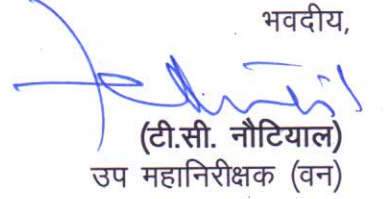 भवदीय,
(टी.सी. नौटियाल)
उप महानिरीक्षक (वन)